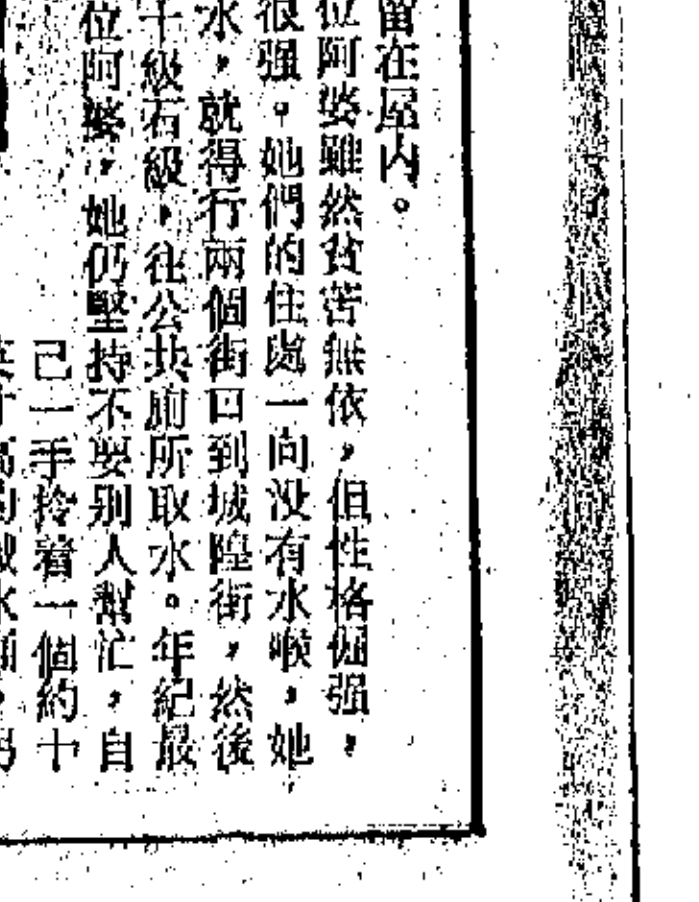 留在屋內。
位阿婆雖然貧苦無依，但性格倔强，
很强。她們的住處一向没有水喉，她
水，就得行兩個街口到城隍街，然後
十級石級，往公共廁所取水。年紀最
位阿婆，她仍堅持不要别人幫忙，自
己一手拎着一個約十